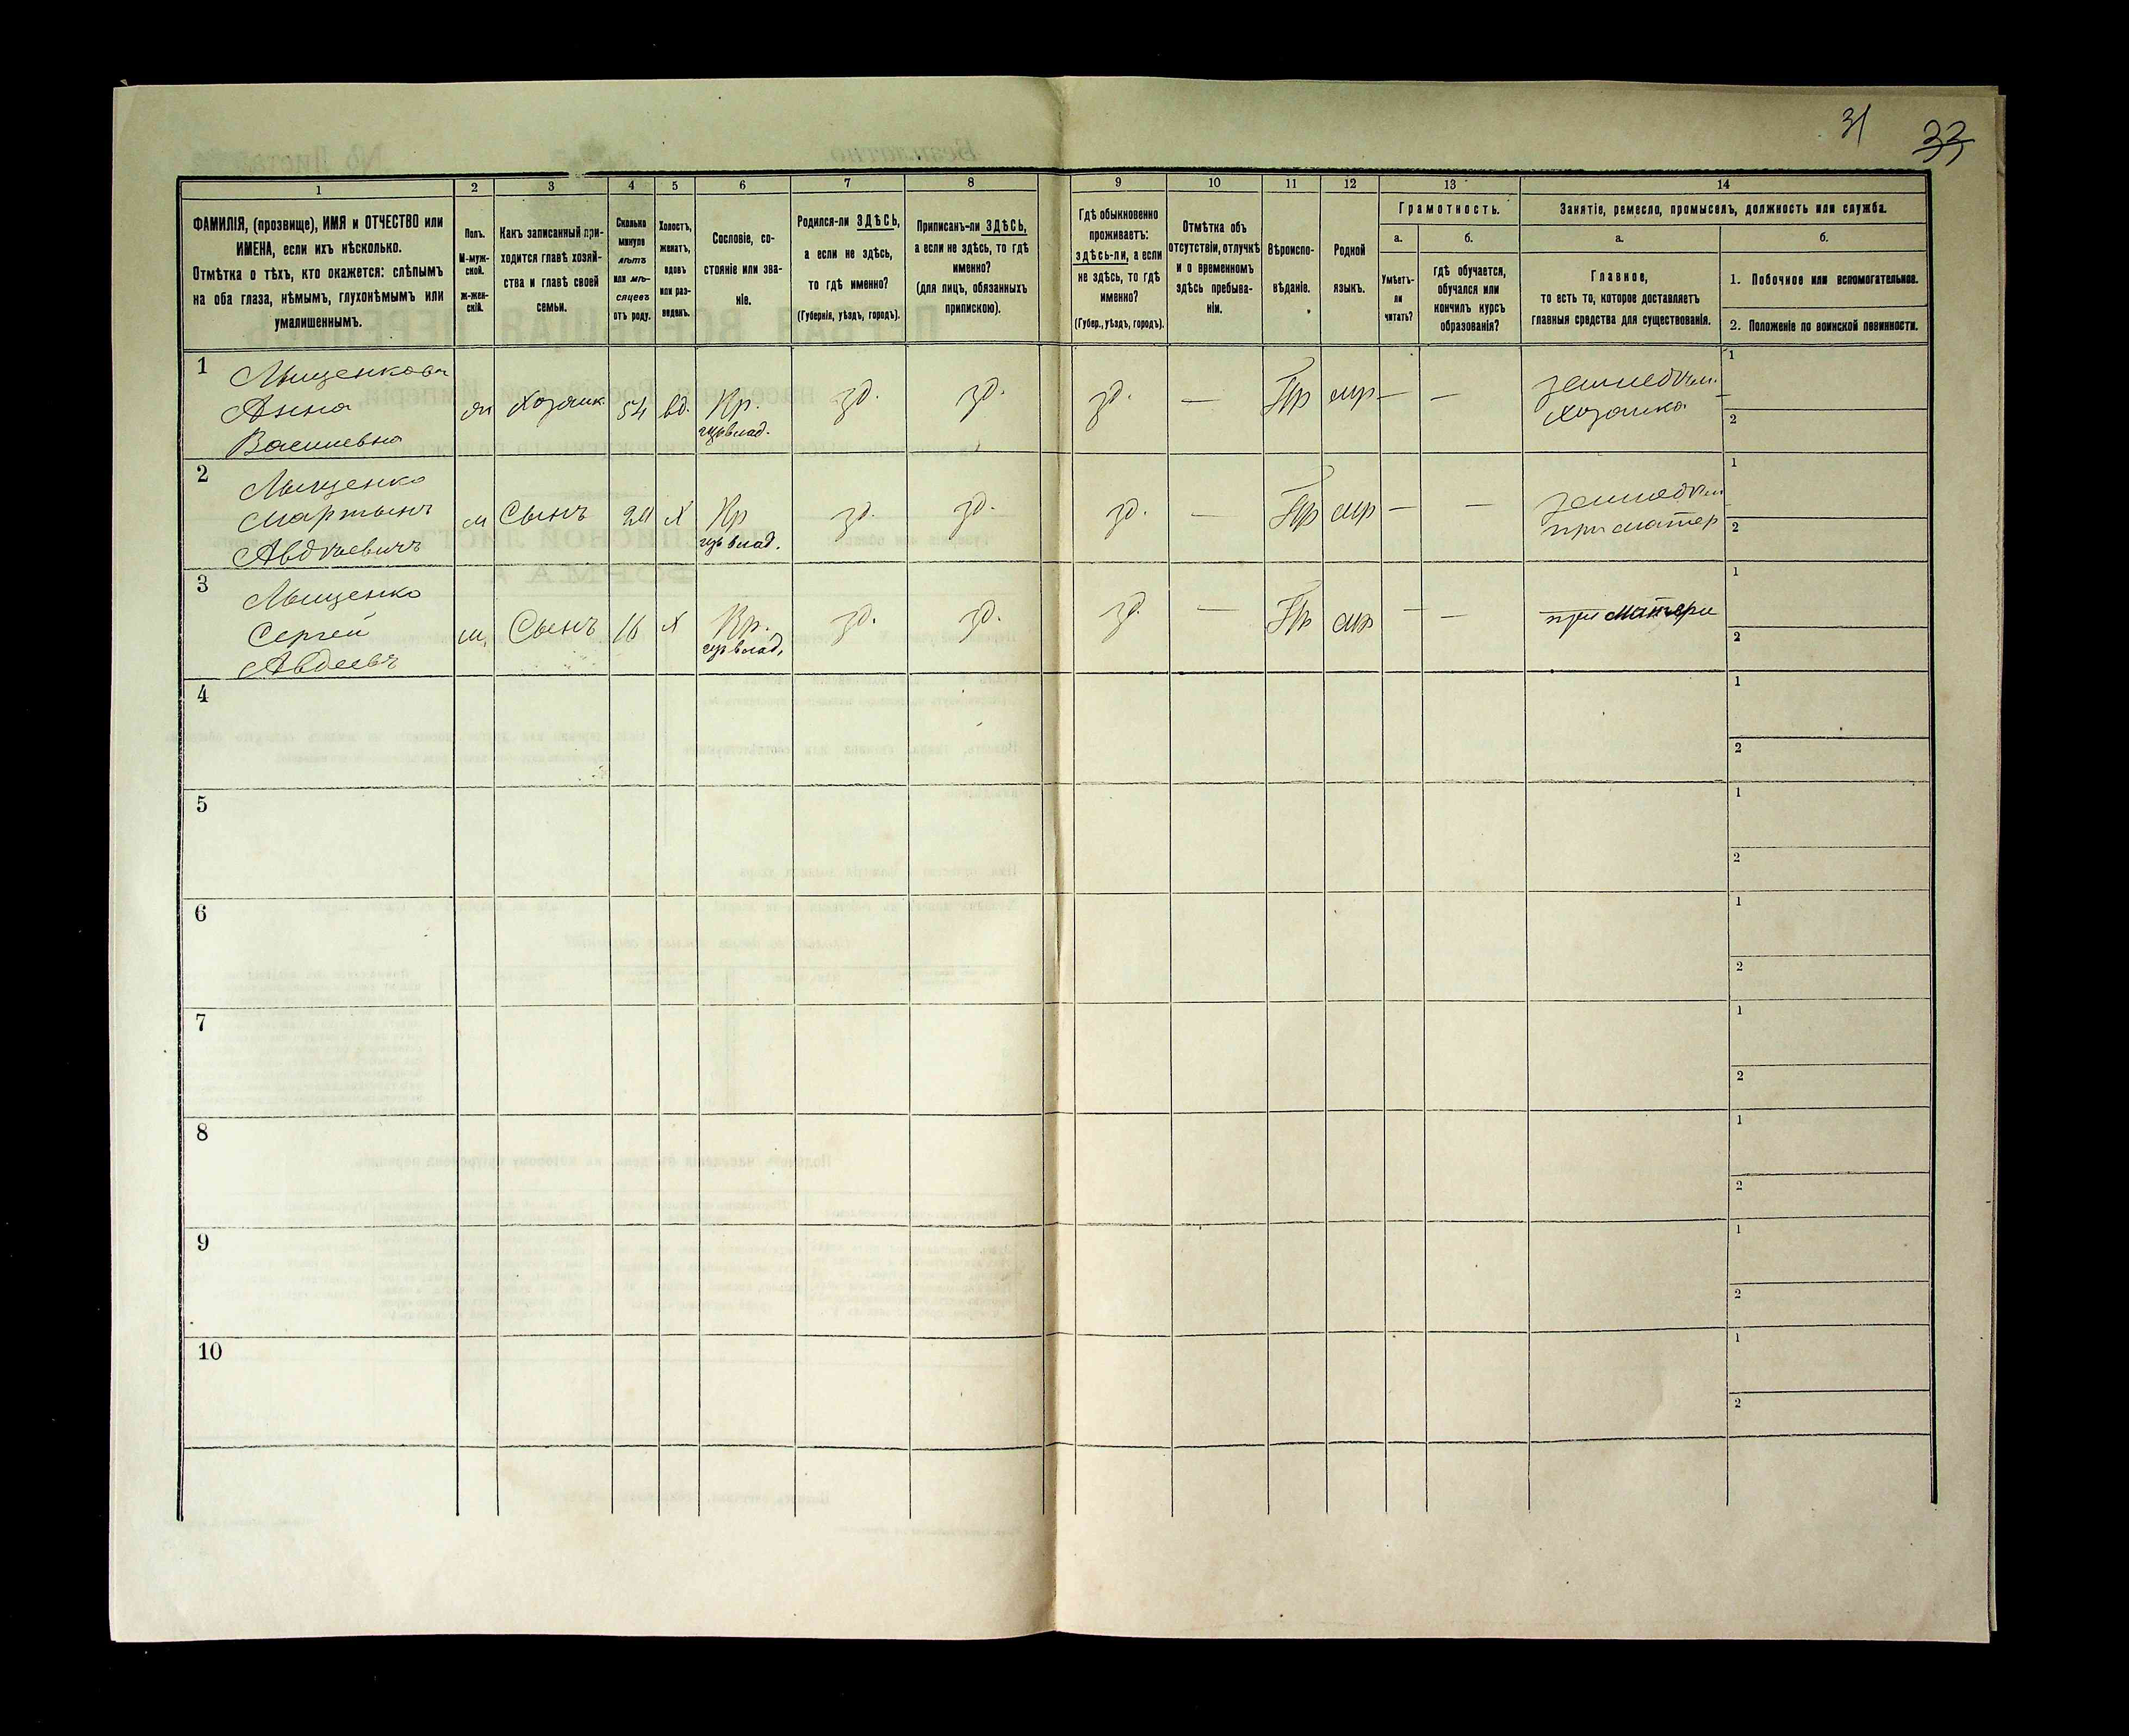 31 33
1 2 3 4 5 6 7 8 9 10 11 12 13 14
ФАМИЛІЯ, (прозвище), ИМЯ и ОТЧЕСТВО или
ИМЕНА, если ихъ нѣсколько.
Отмѣтка о тѣхъ, кто окажется: слѣпымъ
на оба глаза, нѣмымъ, глухонѣмымъ или
умалишеннымъ.
Полъ.
М-муж-
ской.
ж-жен-
скій.
Какъ записанный при-
ходится главѣ хозяй-
ства и главѣ своей
семьи.
Сколько
минуло
лѣтъ
или мѣ-
сяцевъ
отъ роду.
Холостъ,
женатъ,
вдовъ
или раз-
веденъ.
Сословіе, со-
стояніе или зва-
ніе.
Родился-ли ЗДѢСЬ,
а если не здѣсь,
то гдѣ именно?
(Губернія, уѣздъ, городъ).
Приписанъ-ли ЗДѢСЬ,
а если не здѣсь, то гдѣ
именно?
(для лицъ, обязанныхъ
припискою).
Гдѣ обыкновенно
проживаетъ:
здѣсь-ли, а если
не здѣсь, то гдѣ
именно?
(Губер., уѣздъ, городъ).
Отмѣтка объ
отсутствіи, отлучкѣ
и о временномъ
здѣсь пребыва-
ніи.
Вѣроиспо-
вѣданіе.
Родной
языкъ.
Грамотность.
а.
Умѣетъ-
ли
читать?
б.
гдѣ обучается,
обучался или
кончилъ курсъ
образованія?
Занятіе, ремесло, промыселъ, должность или служба.
а.
Главное,
то есть то, которое доставляетъ
главныя средства для существованія.
б.
1. Побочное или вспомогательное.
2. Положеніе по воинской повинности.
1
Анна
Васильевна
ж Хозяик 54 вд. Кр. зд. зд. зд. — Пр мр — —
Хозяика
1
2
2
Мартынъ
Авдѣевичъ
м Сынъ 24 х Кр зд. зд. зд. — Пр мр — —
при матер
1
2
3
Сергей
Авдеевъ
м. Сынъ 16 х Кр. зд. зд. зд. — Пр мр — —
при матери
1
2
4
1
2
5
1
2
6
1
2
7
1
2
8
1
2
9
1
2
10
1
2